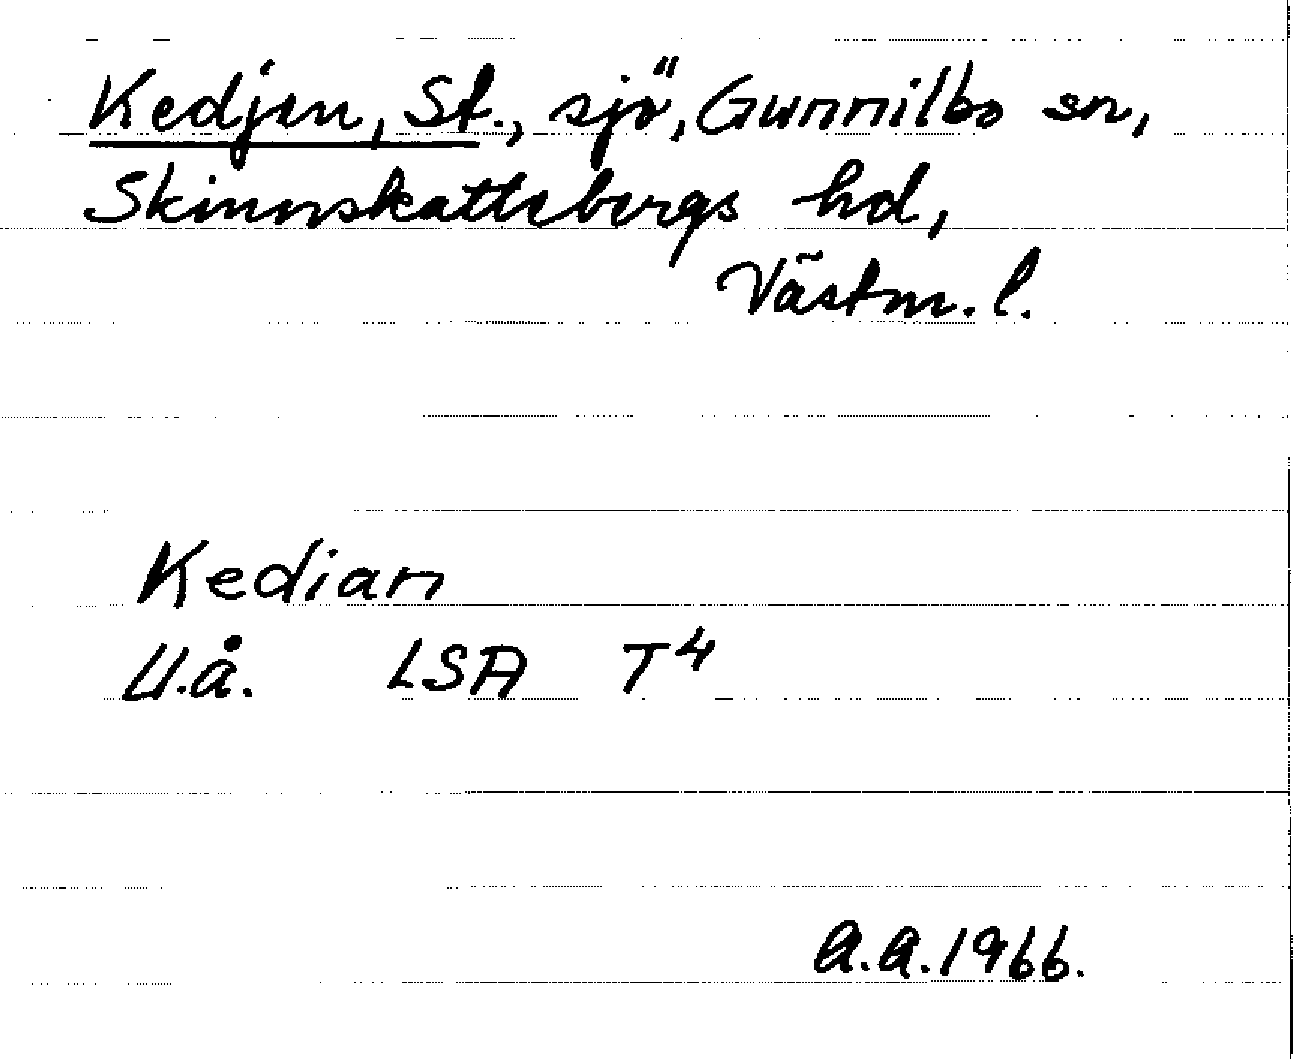 Kedjen, St., sjö, Gunnilbo sn,
Skinnskattebergs hd,
Västm. l.
Kedian
U.å. LSA T4
A.A. 1966.